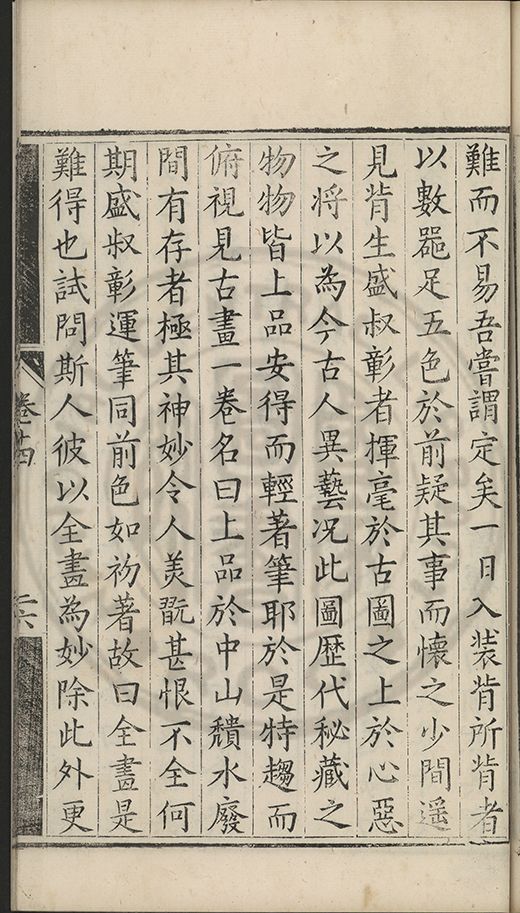 難而不易吾嘗謂定矣一日入裝背所背者
以數噐足五色於前疑其事而懷之少間遥
見背生盛叔彰者揮毫於古圖之上於心惡
之将以為今古人異藝况此圖歴代秘藏之
物物皆上品安得而輕著筆耶於是特趨而
俯視見古畫一卷名曰上品於中山積水廢
間有存者極其神妙令人羙翫甚恨不全何
期盛叔彰運筆同前色如初著故曰全畫是
難得也試問斯人彼以全畫為妙除此外更
卷十四
二六